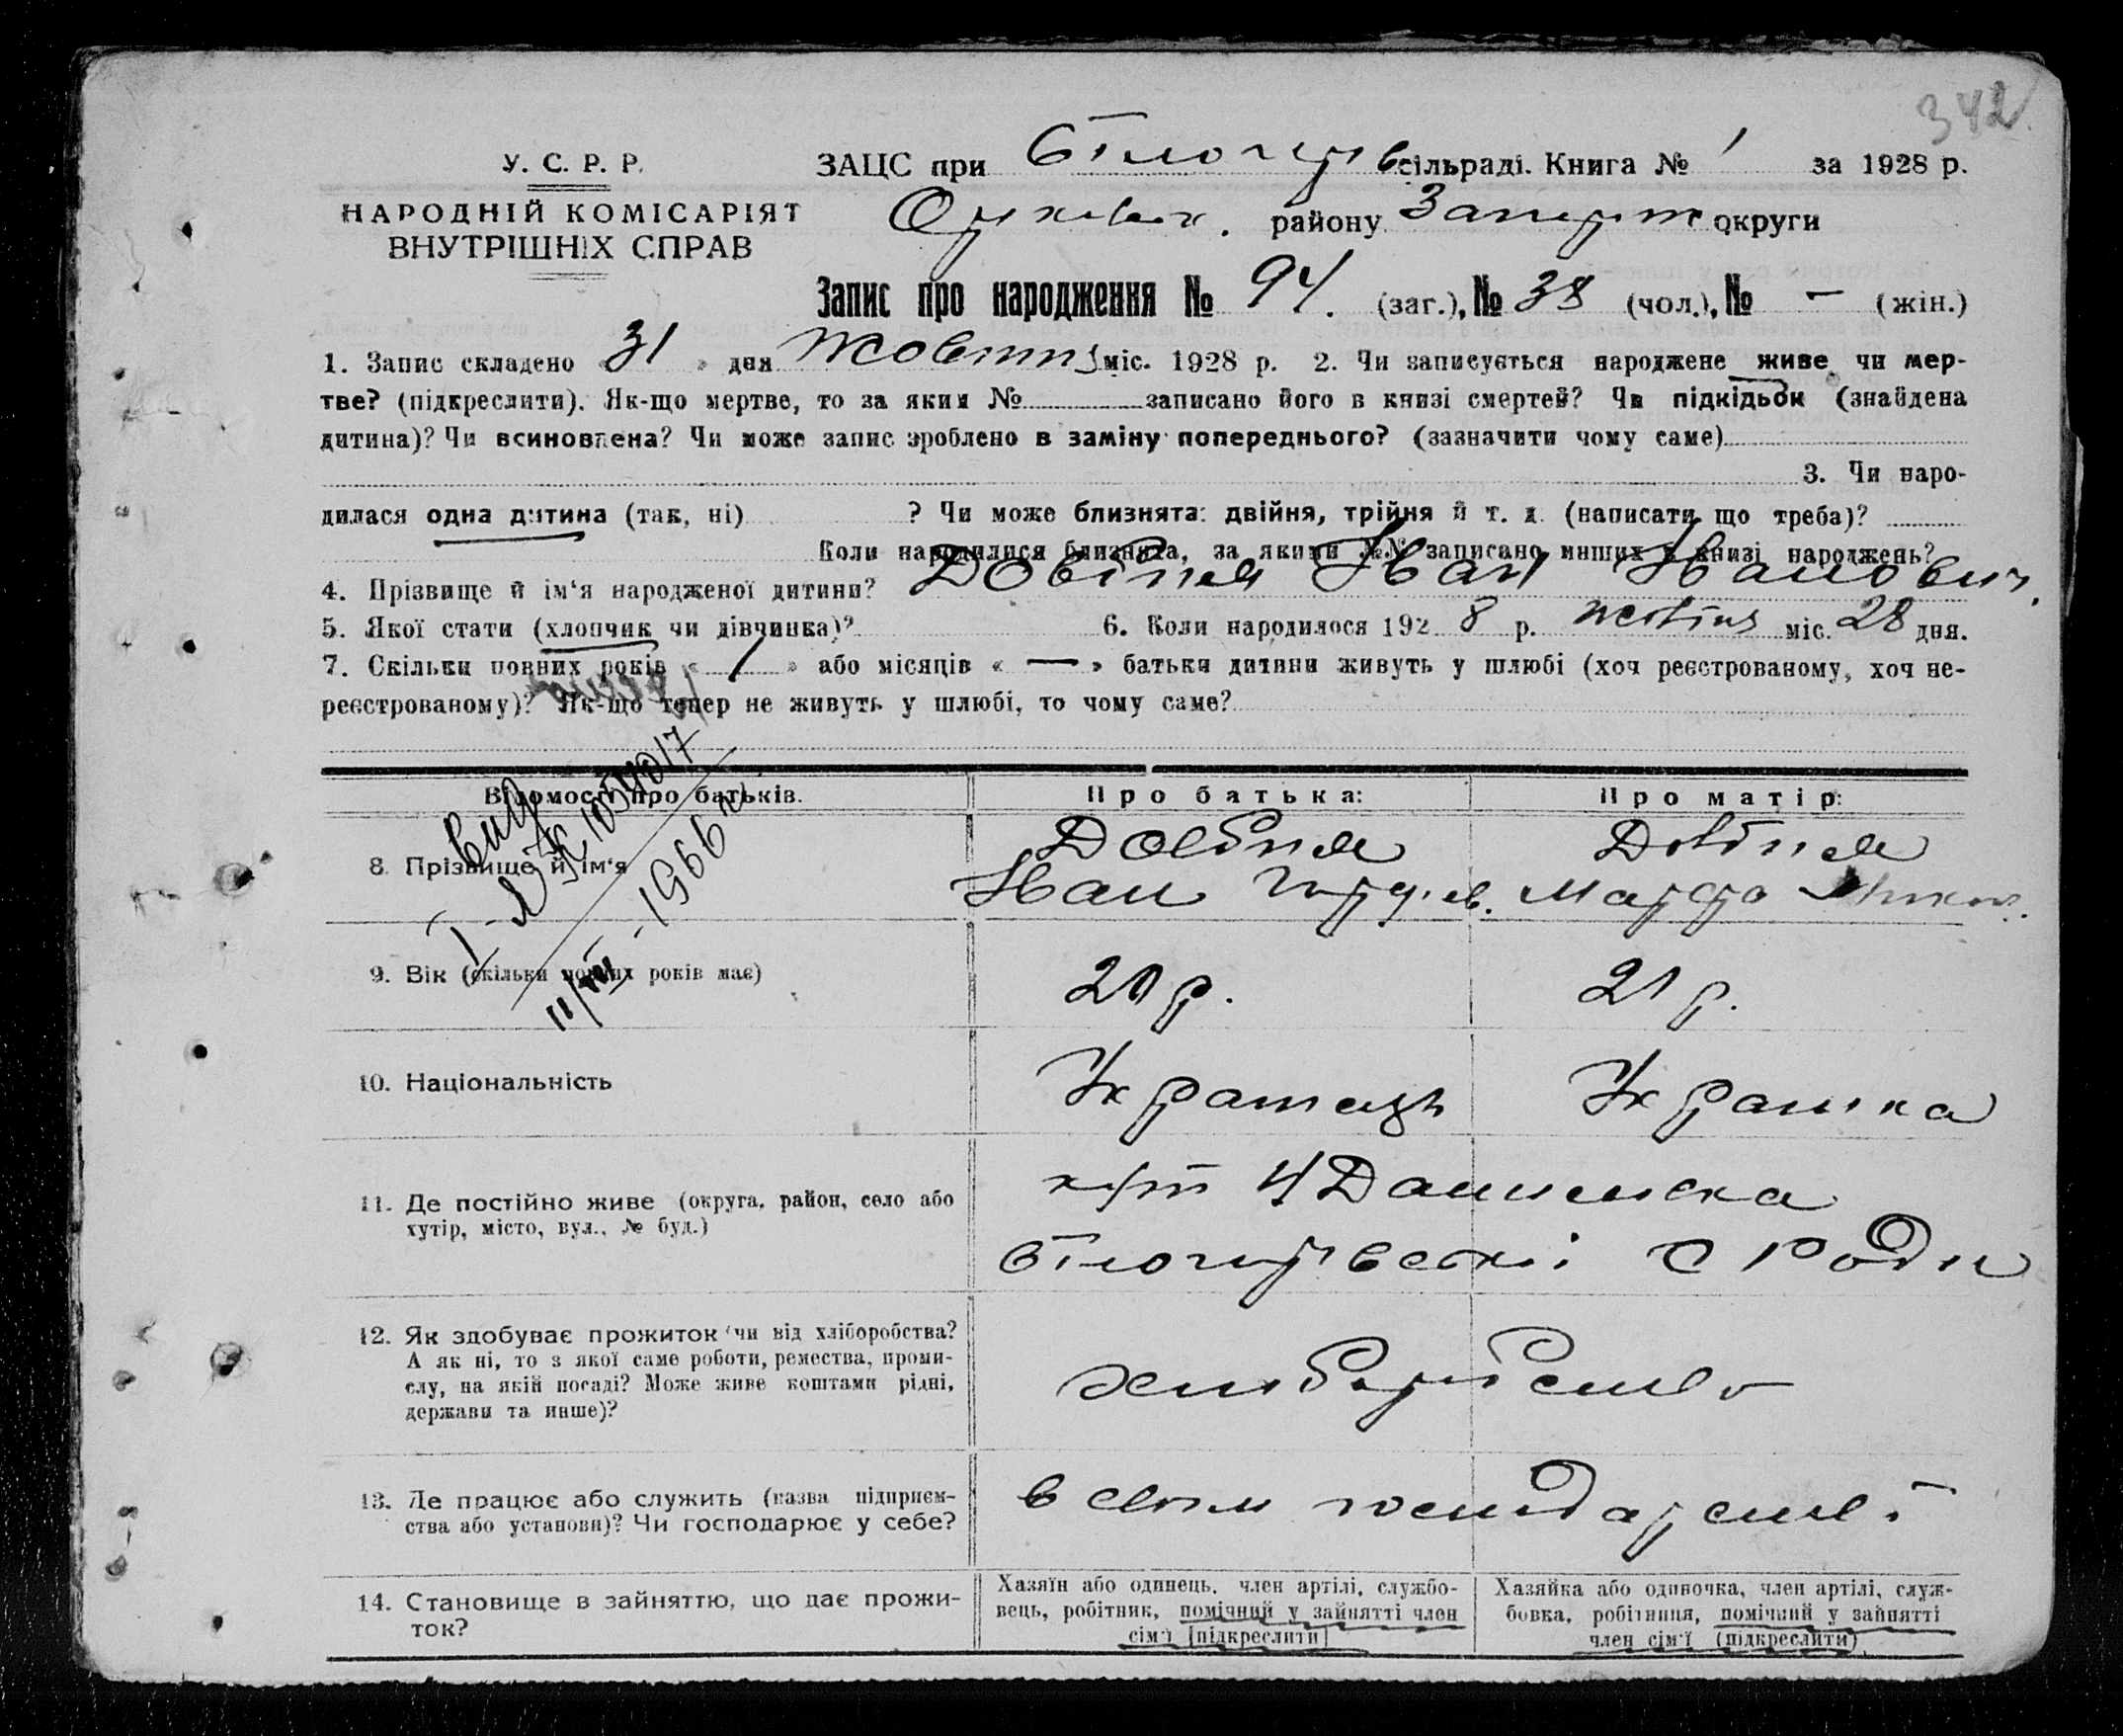 342
У. С. Р. Р.
НАРОДНІЙ КОМІСАРІЯТ
ВНУТРІШНІХ СПРАВ
ЗАЦС при Білогірв сільраді. Книга № 1 за 1928 р.
Оріхівськ. району Запоріж округи
Запис про народження № 94. (заг.), № 38 (чол.), № — (жін.)
1. Запис складено « 31 » дня Жовтня міс. 1928 р. 2. Чи записується народжене живе чи мер-
тве? (підкреслити). Як-що мертве, то за яким № записано його в книзі смертей? Чи підкідьок (знайдена
дитина)? Чи всиновлена? Чи може запис зроблено в заміну попереднього? (зазначити чому саме)
3. Чи наро-
дилася одна дитина (так, ні) ? Чи може близнята: двійня, трійня й т. д. (написати що треба)?
Коли народилися близнята, за якими №№ записано инших в книзі народжень?
4. Прізвище й ім'я народженої дитини? Довбня Іван Іванович.
5. Якої стати (хлопчик чи дівчинка)? 6. Коли народилося 192 8 р. жовтня міс. 28 дня.
7. Скільки повних років « 1 » або місяців « — » батьки дитини живуть у шлюбі (хоч реєстрованому, хоч не-
реєстрованому)? Як-що тепер не живуть у шлюбі, то чому саме?
Відомості про батьків. Про батька: Про матір:
8. Прізвище й ім'я
Довбня Довбня
Іван Марфа
1966
9. Вік (скільки повних років має) 20 р. 21 р.
10. Національність Українець Українка
11. Де постійно живе (округа, район, село або
хутір, місто, вул., № буд.)
хут Н Данилівка
Білогірвської с ради
12. Як здобуває прожиток чи від хліборобства?
А як ні, то з якої саме роботи, ремества, проми-
слу, на якій посаді? Може живе коштами рідні,
держави та инше)?
хліборобство
13. Де працює або служить (назва підприєм-
ства або установи)? Чи господарює у себе?
в своїм господарстві
14. Становище в зайняттю, що дає прожи-
ток?
Хазяїн або одинець, член артілі, службо-
вець, робітник, помічний у зайнятті член
сім'ї (підкреслити)
Хазяйка або одиночка, член артілі, служ-
бовка, робітниця, помічний у зайнятті
член сім'ї (підкреслити)